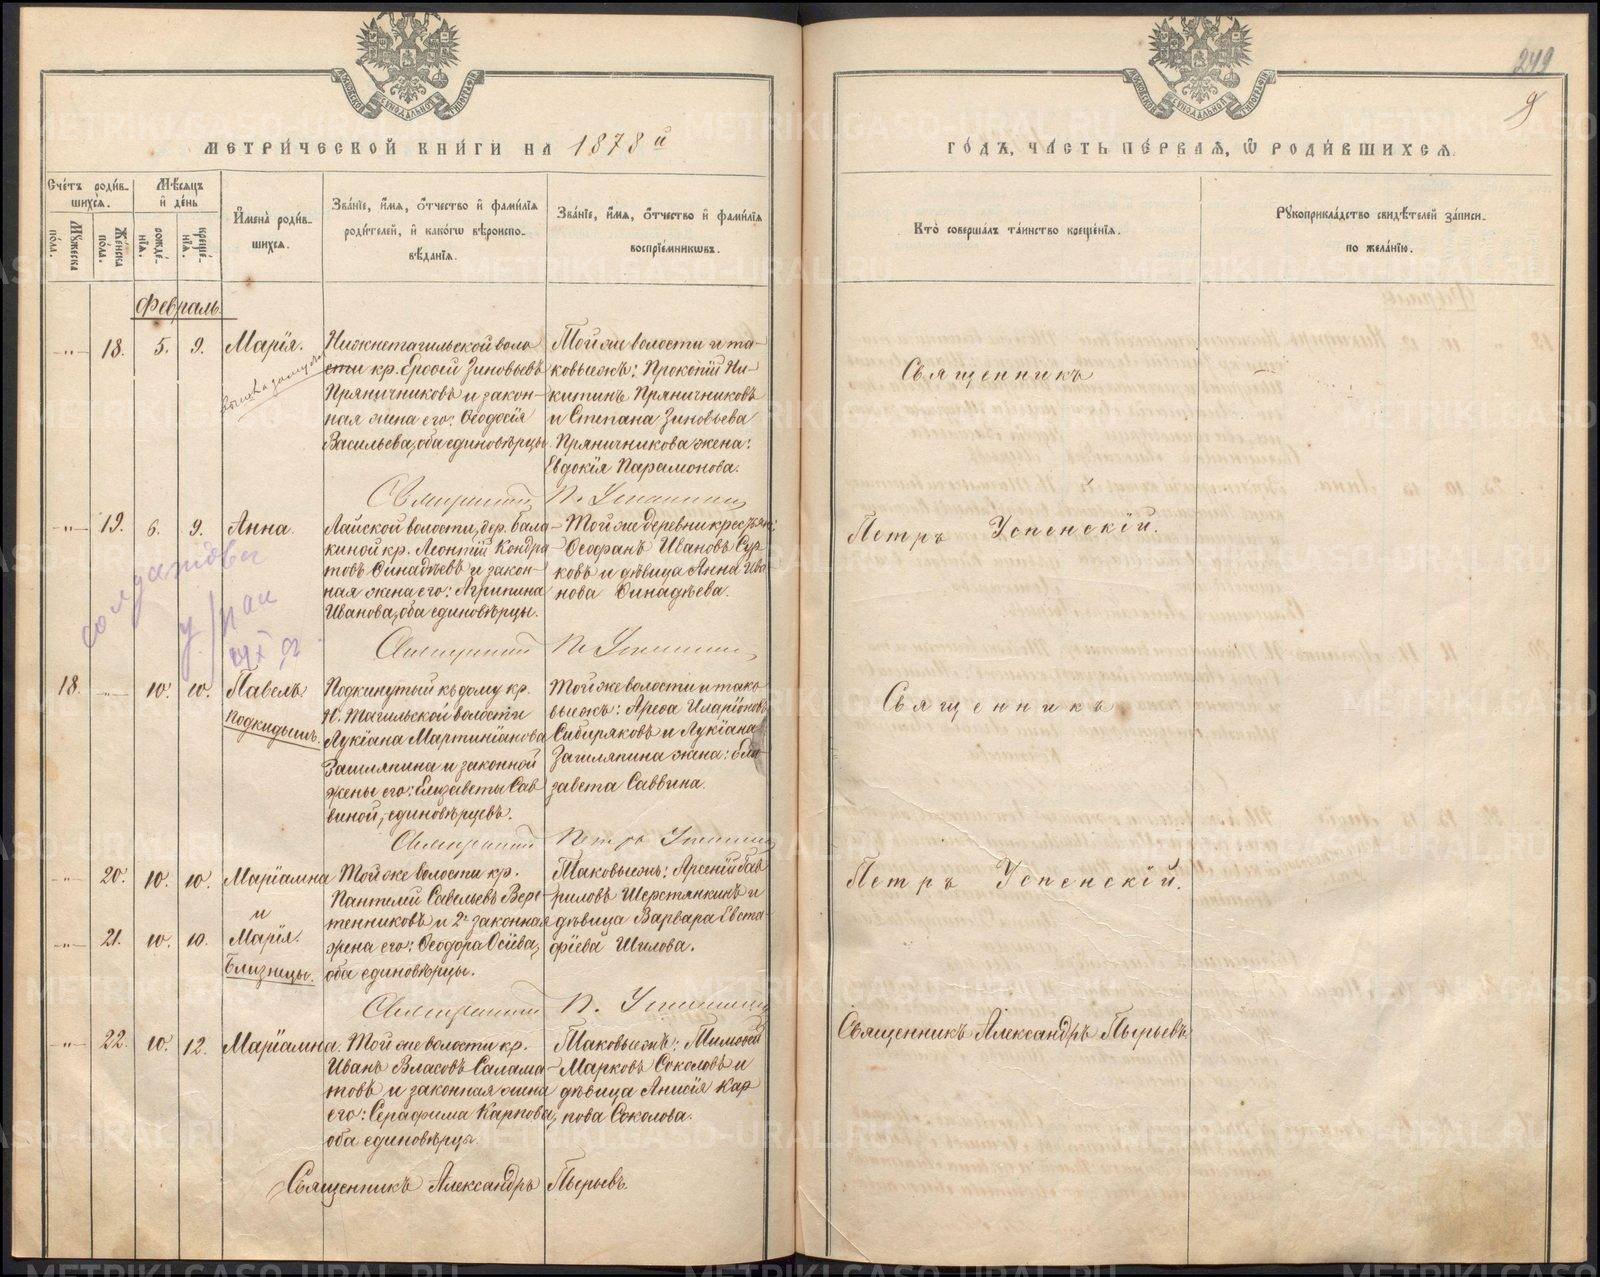 МЕТРИ́ЧЕСКОЙ КНИ́ГИ НА 1878 й
Счéтъ роди́в-
шихсѧ.
Мѣ́сяцъ
й де́нь
Мꙋ́жеска
по́ла.
Же́нска
по́ла.
рожде́-
нїѧ.
креще́-
нїѧ.
Имена̀ роди́в-
шихсѧ.
Зва́нїе, и́мѧ, о́тчество и҆ фами́лїѧ
роди́телей, и҆ како́гѡ вѣроиспо-
вѣ́данїѧ.
Зва́нїе, и́мѧ, о́тчество и҆ фами́лїѧ
воспрїе́мникωвъ.
Февраль.
18. 5. 9. Марія.
Нижнетагильской воло
сти кр. Ерофей Зиновьевъ
Пряничниковъ и закон-
ная жена его: Ѳеодосія
Васильева, оба единовѣрцы.
Той же волости и та-
ковыежъ: Прокопій Ни-
китинъ Пряничниковъ
и Степана Зиновьева
Пряничникова жена:
Евдокія Парамонова.
Священникъ П. Успенскій
19. 6. 9. Анна.
Лайской волости, дер. Бала
киной кр. Леонтій Кондра
товъ Финадѣевъ и закон-
ная жена его: Агрипина
Иванова, оба единовѣрцы.
Той же деревни крестьян:
Ѳеофанъ Ивановъ Сур-
ковъ и дѣвица Анна Ива
нова Финадѣева.
Священникъ П. Успенскій
18. 10. 10. Павелъ
подкидышъ.
Подкинутый къ дому кр.
Н. Тагильской волости
Лукіана Мартиніанова
Зашляпина и законной
жены его: Елизаветы Сав
виной, единовѣрцевъ.
Той же волости и тако
выежъ: Арефа Иларіоновъ
Сибиряковъ и Лукіана
Зашляпина жена: Ели-
завета Саввина.
Священникъ Петръ Успенскій
20. 10. 10. Маріамна
и
21. 10. 10. Марія.
Близнецы.
Той же волости кр.
Пантелій Савельевъ Вере-
тенниковъ и 2я законная
жена его: Ѳеодора Осіева,
оба единовѣрцы.
Таковыежъ: Арсеній Гав
риловъ Шерстянкинъ и
дѣвица Варвара Евста-
фіева Шилова.
Священникъ П. Успенскій
22. 10. 12. Маріамна.
Той же волости кр.
Иванъ Власовъ Салама-
товъ и законная жена
его: Серафима Карпова,
оба единовѣрцы.
Таковыежъ: Тимофей
Марковъ Соколовъ и
дѣвица Анисія Кар
пова Соколова.
Священникъ Александръ Пырьевъ.
249
9
ГО́ДЪ, ЧА́СТЬ ПЕ́РВАѦ, Ѡ҆ РОДИ́ВШИХСѦ.
Кто̀ соверша́лъ та́инство креще́нїѧ.
Рꙋкоприкла́дство свидѣ́телей за́писи
по жела́нїю.
Священникъ
Петръ Успенскій.
Священникъ
Петръ Успенскій.
Священникъ Александръ Пырьевъ
METRIKI.GASO-URAL.RU